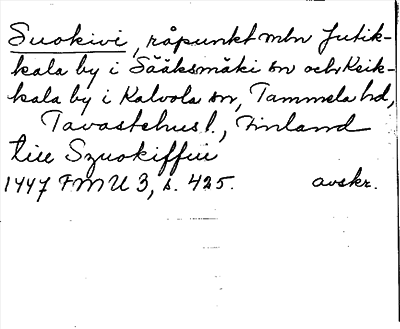 Suokivi, råpunkt mln Jutik-
kala by i Sääksmäki sn och Keik-
kala by i Kalvola sn, Tammela hd,
Tavastehus l., Finland
till Szuokiffui
1447 FMU 3, s. 425. avskr.